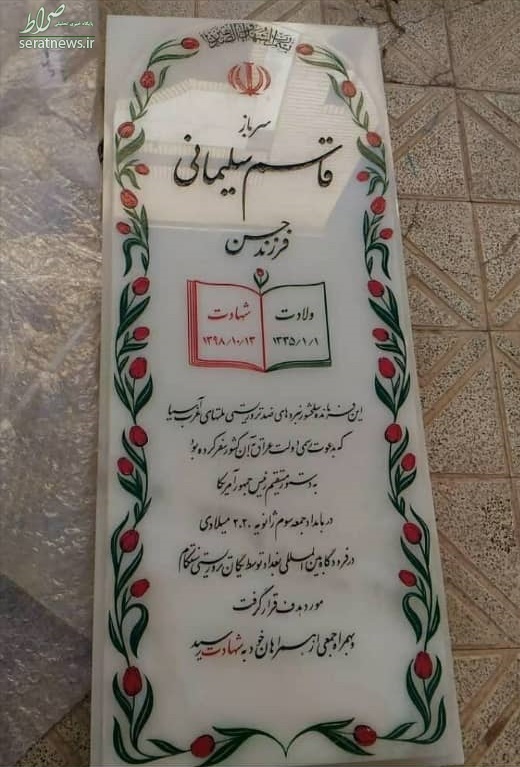 صراط
پایگاه خبری تحلیلی
seratnews.ir
بسم رب الشهداء و الصدیقین
سرباز
قاسم سلیمانی
فرزند حسن
ولادت
۱۳۳۵/۱/۱
شهادت
۱۳۹۸/۱۰/۱۳
این فرمانده سلحشور نبردهای ضد تروریستی ملتهای غرب آسیا
که به دعوت رسمی دولت عراق به آن کشور سفر کرده بود
به دستور مستقیم رئیس جمهور آمریکا
در بامداد جمعه سوم ژانویه ۲۰۲۰ میلادی
در فرودگاه بین المللی بغداد توسط یگان تروریستی سنتکام
مورد هدف قرار گرفت
و بهمراه جمعی از همراهان خود به شهادت رسید